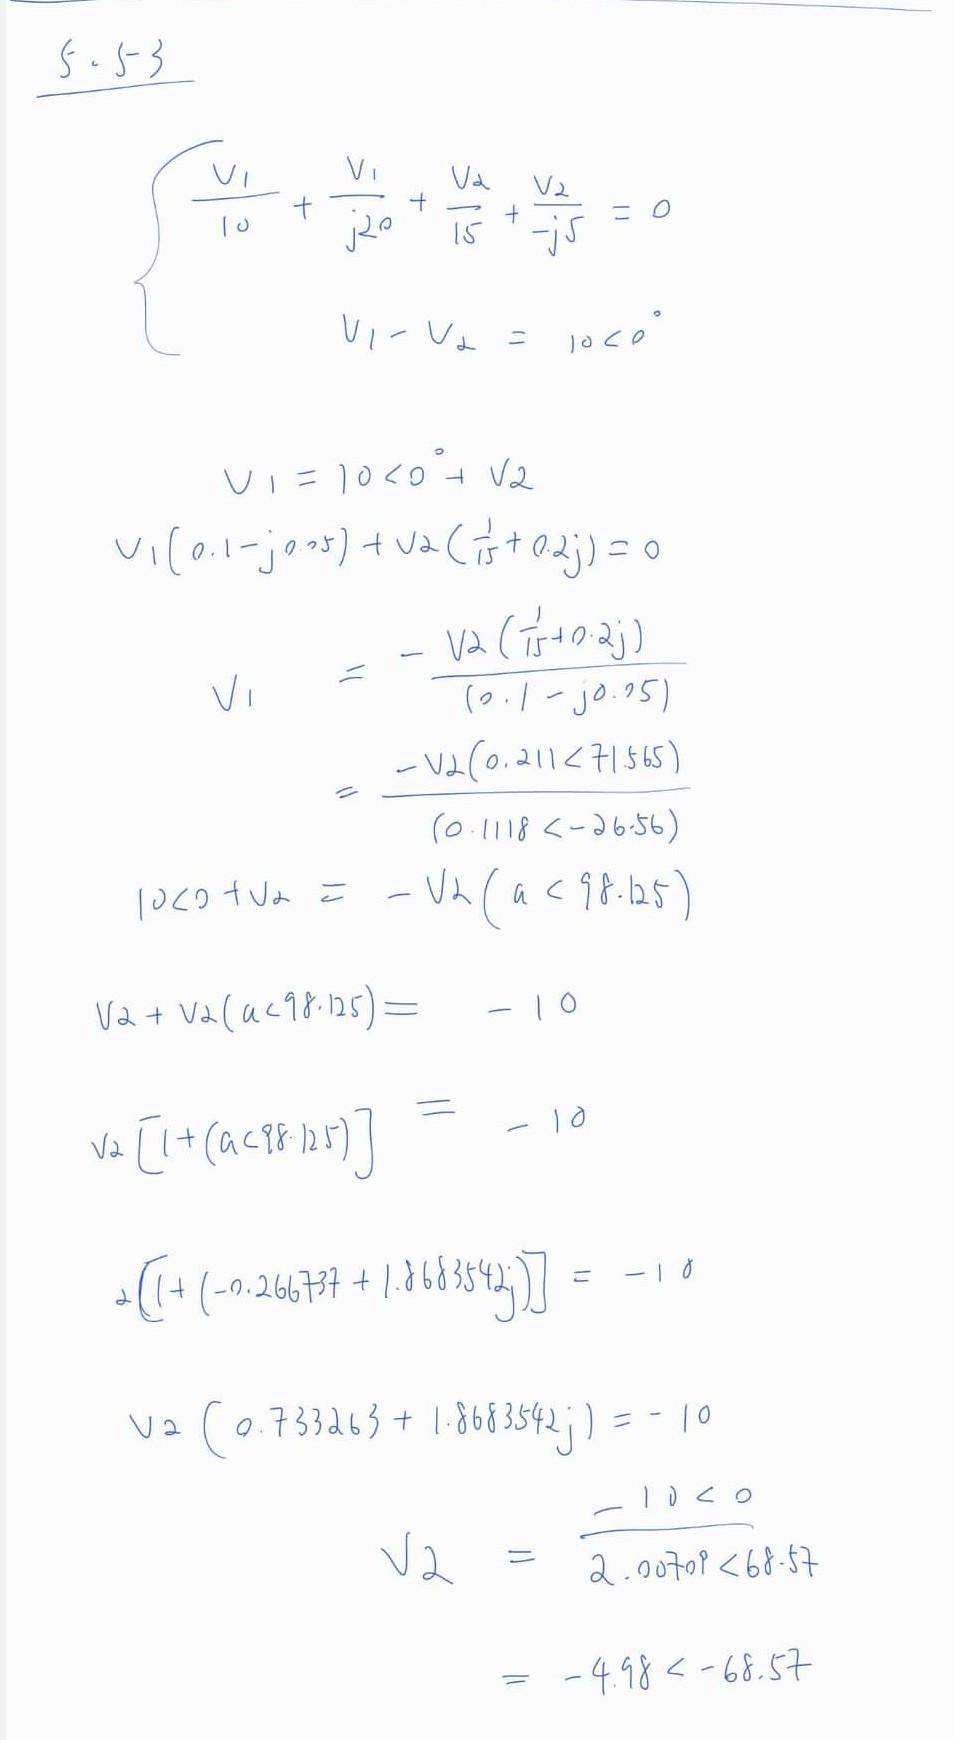 5.53
V1/10 + V1/j20 + V2/15 + V2/-j5 = 0
V1 - V2 = 10<0°
V1 = 10<0° + V2
V1(0.1-j0.05) + V2(1/15+0.2j) = 0
V1 = -V2(1/15+0.2j)/(0.1-j0.05)
= -V2(0.211<71.565)/(0.1118<-26.56)
10<0 + V2 = -V2(a<98.125)
V2 + V2(a<98.125) = -10
V2[1+(a<98.125)] = -10
2[1+(-0.266737+1.8683542j)] = -10
V2(0.733263+1.8683542j) = -10
V2 = -10<0/2.00709<68.57
= -4.98<-68.57